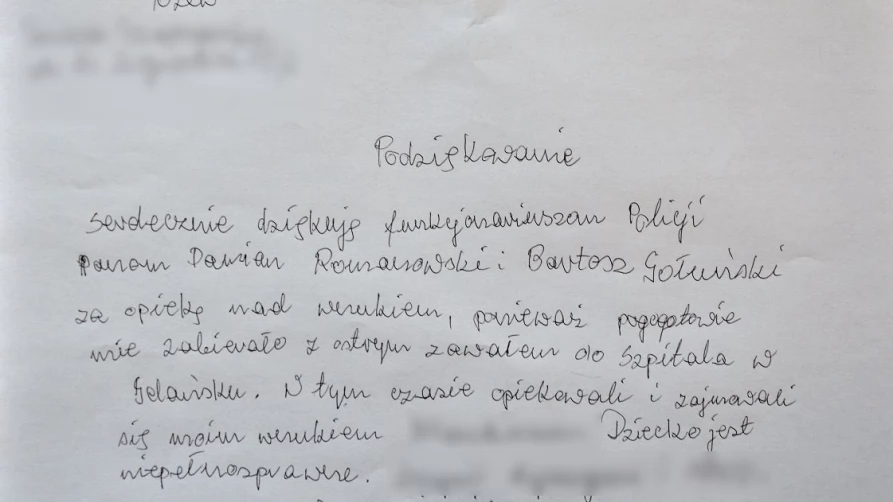 Tczew
Podziękowanie
Serdecznie dziękuję funkcjonariuszom Policji
panom Damian Romanowski i Bartosz Gołuński
za opiekę nad wnukiem, ponieważ pogogotowie
mnie zabierało z ostrym zawałem do Szpitala w
Gdańsku. W tym czasie opiekowali i zajmowali
się moim wnukiem Dziecko jest
niepełnosprawne.